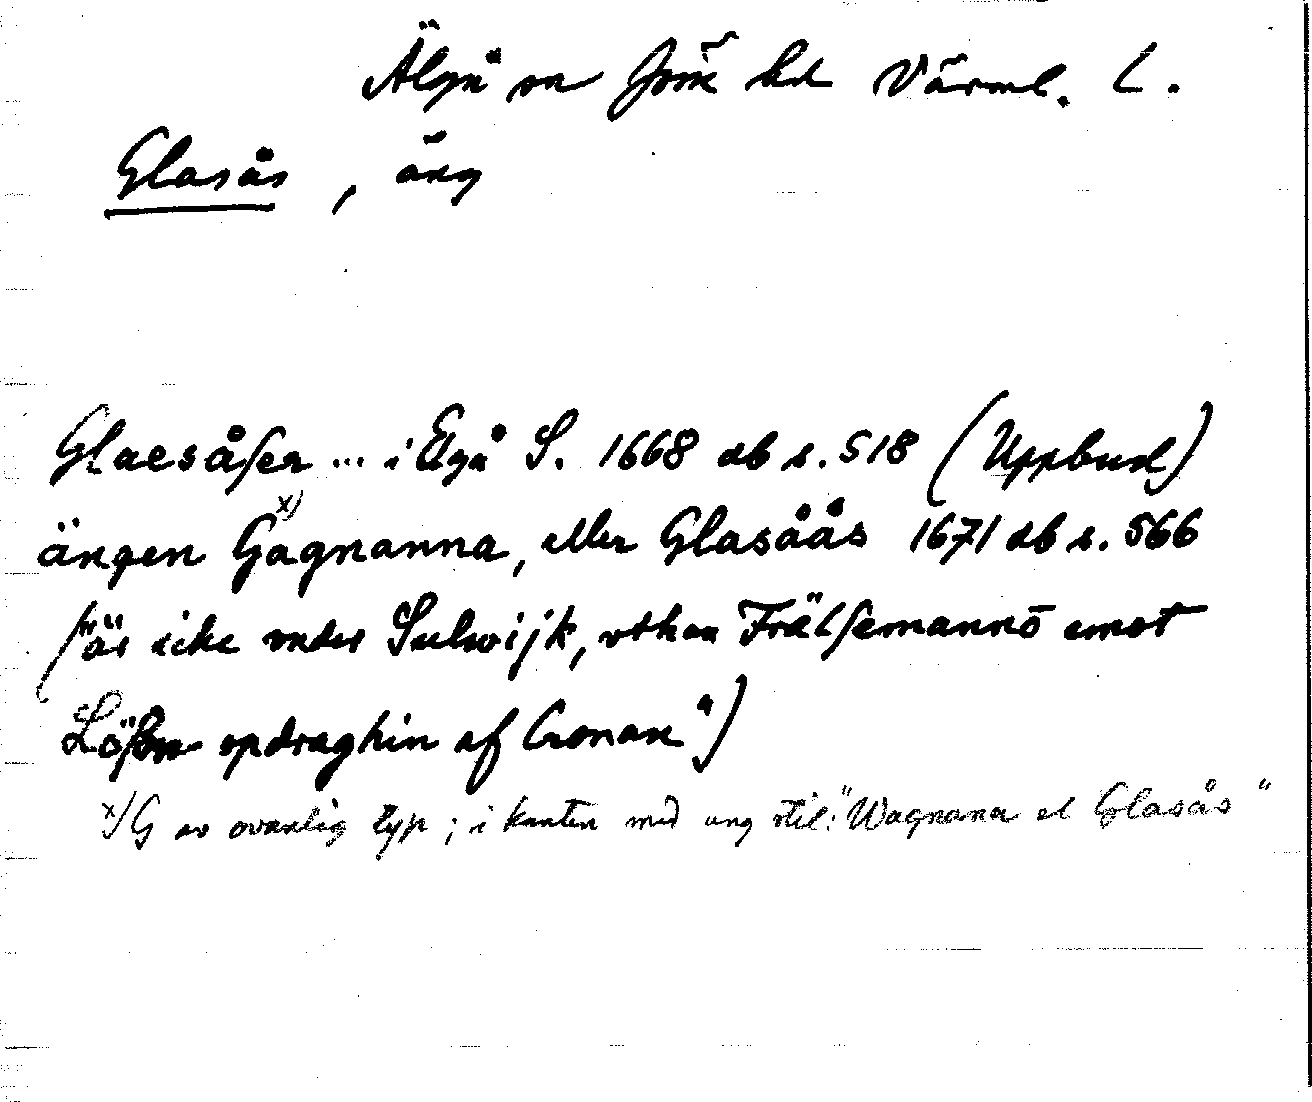 Älgå sn Jösse hd Värml. l.
Glasås, äng
Glaesåser ... i Elgå S. 1668 db s. 518 (Uppbud)
ängen Gagnanna, x) eller Glasåås 1671 db s. 566
("är icke under Sulwijk, uthan Frälsemannō emot
opdraghin af Cronan")
x) G av ovanlig typ; i kanten med ung stil: "Wagnana el Glasås"